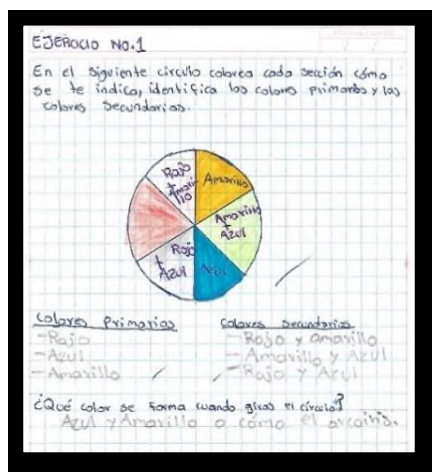 EJERCICIO NO.1
En el siguiente círculo colorea cada sección cómo
se te indica, identifica los colores primarios y los
colores secundarios.
Rojo
+
Amari-
llo
Amarillo
Amarillo
+
Azul
Azul
Rojo
+
Azul
Colores Primarios
-Rojo
-Azul
-Amarillo
colores secundarios
-Rojo y amarillo
-Amarillo y Azul
-Rojo y Azul
¿Qué color se forma cuando giras el círculo?
Azul y Amarillo o cómo el arcoiris.